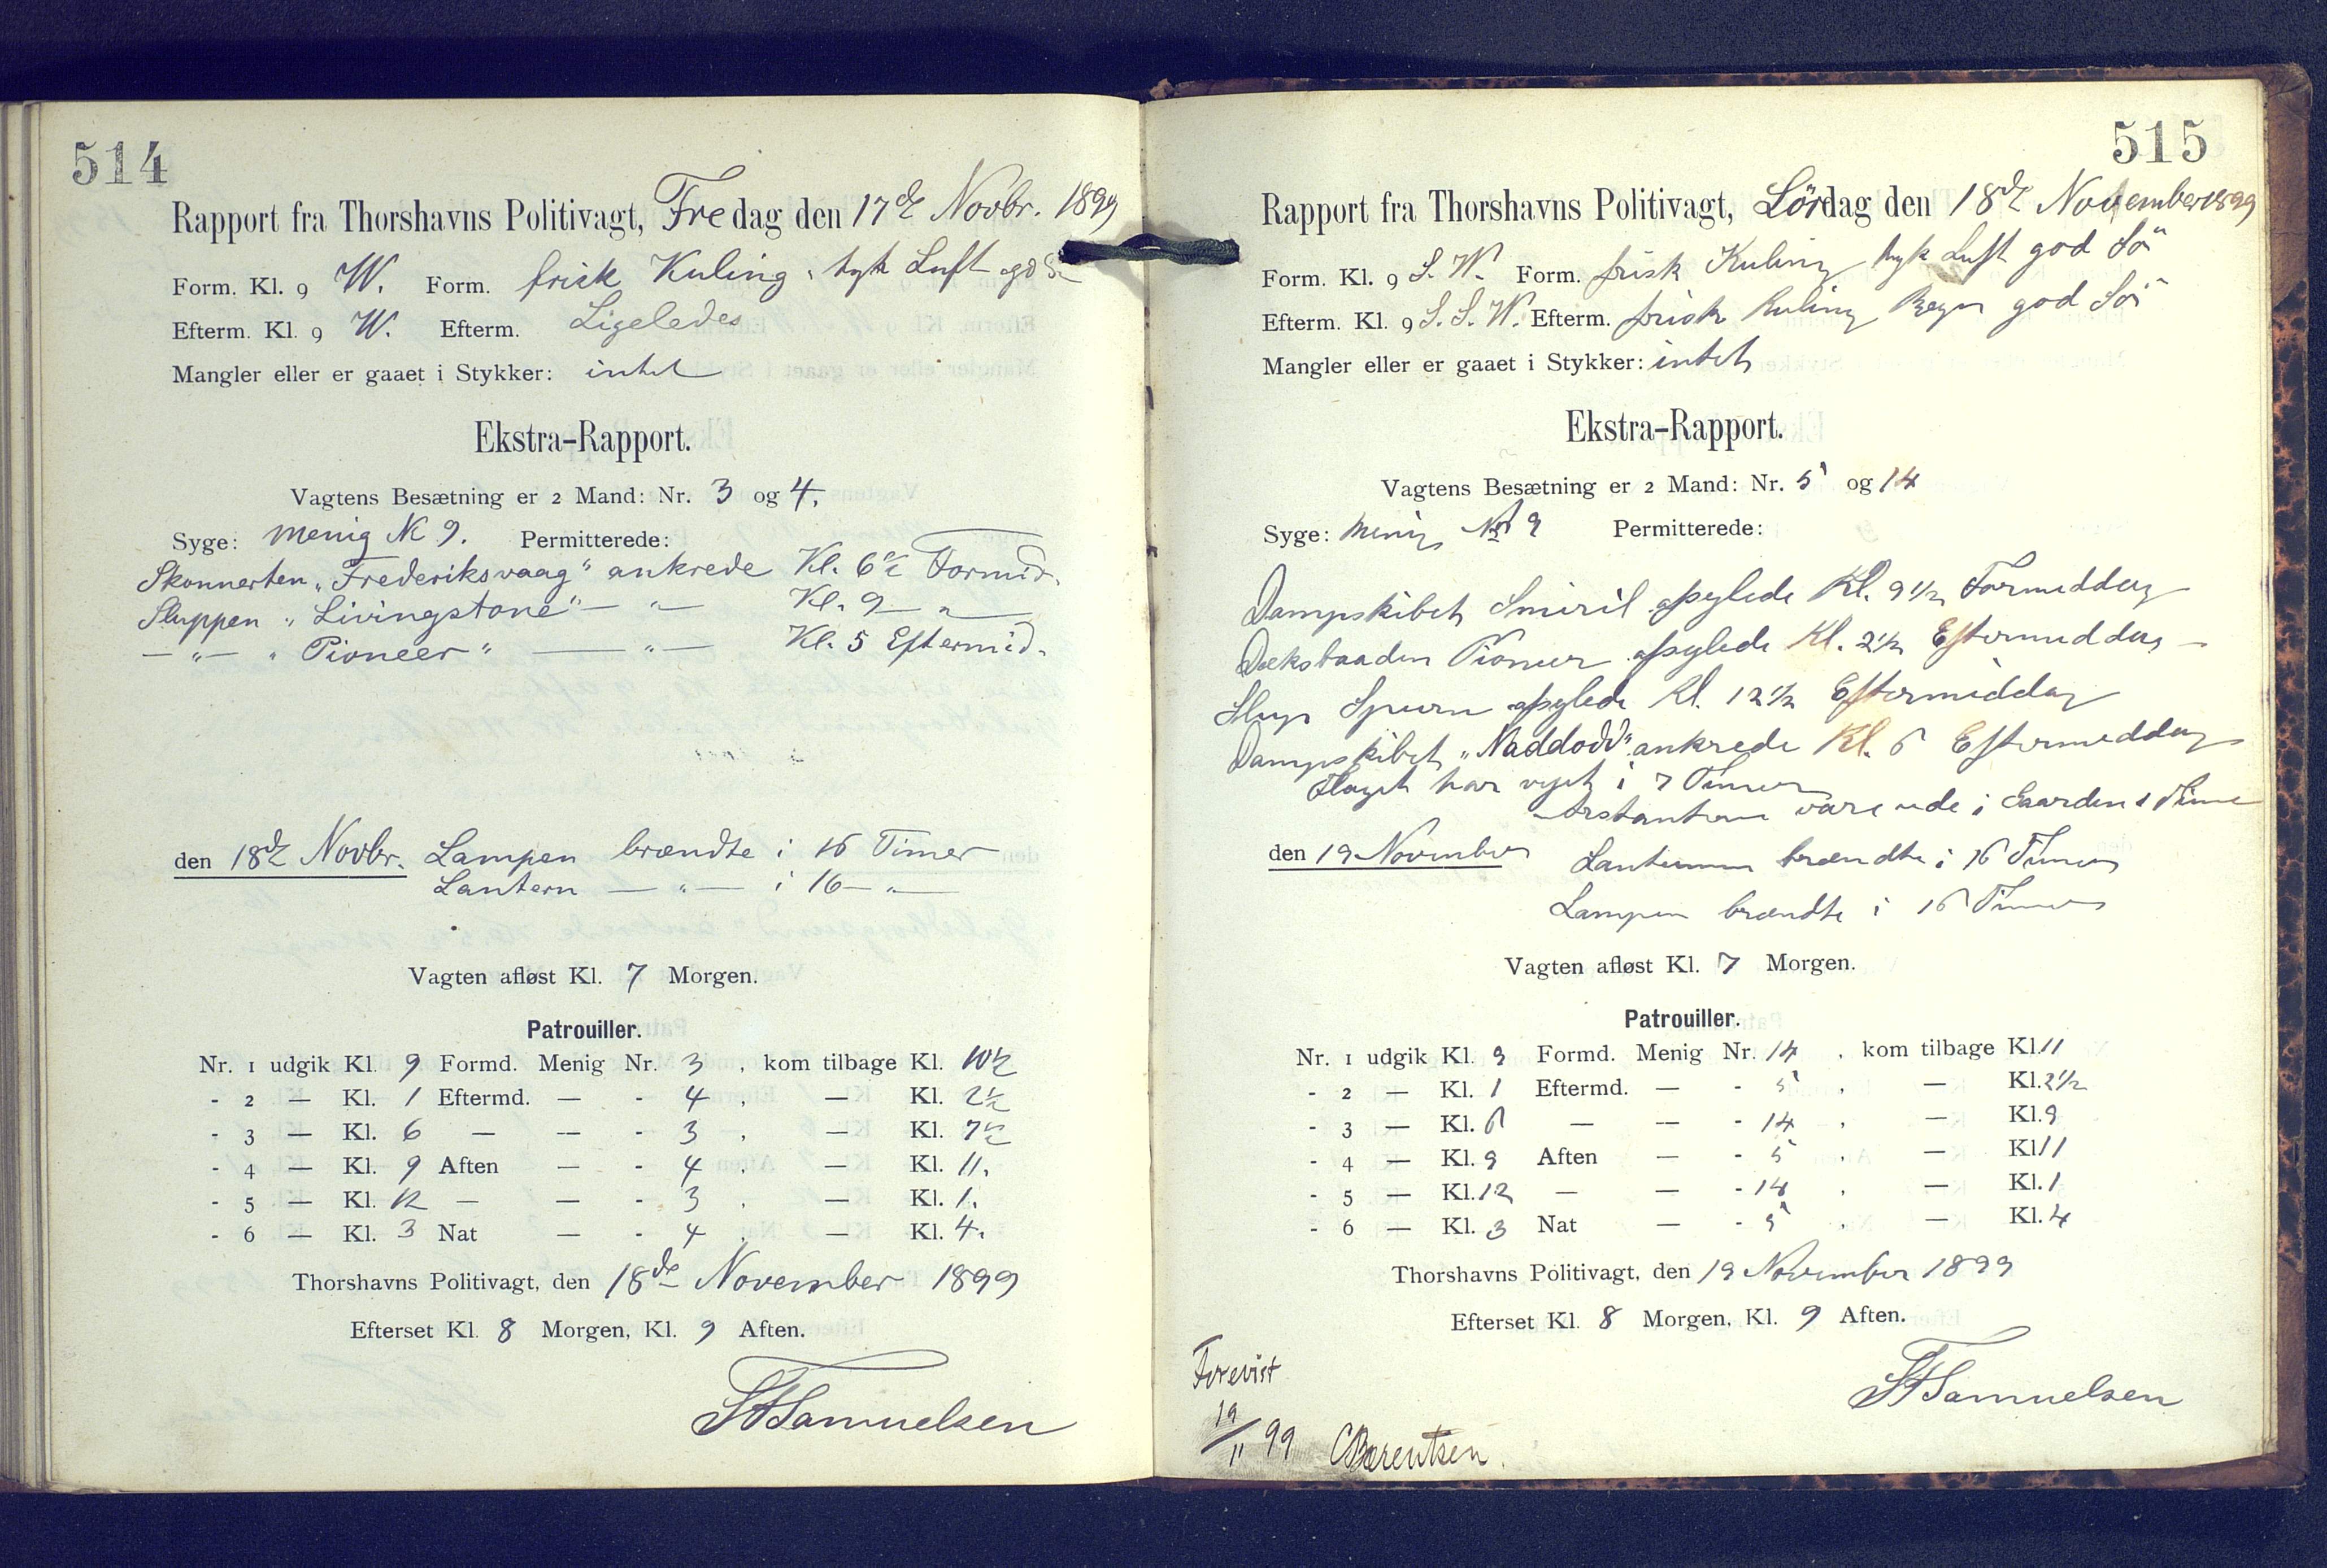 514
Rapport fra Thorshavns Politivagt, Fredag den 17de Novbr. 1899
Form. Kl. 9 W. Form. frisk Kuling, tyk Luft
Efterm. Kl. 9 W. Efterm. Ligeledes
Mangler eller er gaaet i Stykker: intet
Ekstra-Rapport.
Vagtens Besætning er 2 Mand: Nr. 3 og 4.
Syge: Menig N 9. Permitterede:
Skonnerten „Frederiksvaag" ankrede Kl. 6½ Formid.
Sluppen „Livingstone" — " — Kl. 9 — " —
— " — „Pioneer" — " — Kl. 5 Eftermid.
den 18de Novbr. Lampen brændte i 16 Timer
Lantern — " — i 16 — " —
Vagten afløst Kl. 7 Morgen.
Patrouiller.
Nr. 1 udgik Kl. 9 Formd. Menig Nr. 3, kom tilbage Kl. 10½
- 2 — Kl. 1 Eftermd. — - 4, — Kl. 2½
- 3 — Kl. 6 — — - 3, — Kl. 7½
- 4 — Kl. 9 Aften — - 4, — Kl. 11.
- 5 — Kl. 12 — — - 3, — Kl. 1.
- 6 — Kl. 3 Nat — - 4, — Kl. 4.
Thorshavns Politivagt, den 18de November 1899
Efterset Kl. 8 Morgen, Kl. 9 Aften.
Samuelsen
515
Rapport fra Thorshavns Politivagt, Lördag den 18de November 1899
Form. Kl. 9 S. W. Form. frisk Kuling tyk Luft god Sö
Efterm. Kl. 9 S. S. W. Efterm. frisk Kuling Regn god Sö
Mangler eller er gaaet i Stykker: intet
Ekstra-Rapport.
Vagtens Besætning er 2 Mand: Nr. 5 og 14
Syge: Menig No 9 Permitterede:
Dampskibet Smiril afseglede Kl. 9½ Formiddag
Dæksbaaden Pioneer afseglede Kl. 2½ Eftermiddag —
Slup Spurn afseglede Kl. 12½ Eftermiddag
Dampskibet „Naddodd" ankrede Kl. 6 Eftermiddag
Flaget har vejet i 7 Timer
Arstanterne vare ude i Gaarden 1 Time
den 19 November Lanternen brændte i 16 Timer
Lampen brændte i 16 Timer
Vagten afløst Kl. 7 Morgen.
Patrouiller.
Nr. 1 udgik Kl. 9 Formd. Menig Nr. 14, kom tilbage Kl. 11
- 2 — Kl. 1 Eftermd. — - 5, — Kl. 2½
- 3 — Kl. 6 — — - 14, — Kl. 9
- 4 — Kl. 9 Aften — - 5, — Kl. 11
- 5 — Kl. 12 — — - 14, — Kl. 1
- 6 — Kl. 3 Nat — - 5, — Kl. 4
Thorshavns Politivagt, den 19 November 1899
Efterset Kl. 8 Morgen, Kl. 9 Aften.
Samuelsen
Forevist
19/11 99 CBærentsen.